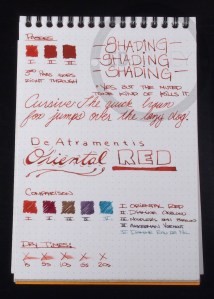 Passes
SHADING
SHADING
SHADING
I II III
3RD PASS GOES
RIGHT THROUGH
* YES BUT THE MUTED
TONE KIND OF KILLS IT.
Cursive: The quick brown
fox jumps over the lazy dog.
De Atramentis
Oriental RED
COMPARISON
I ORIENTAL RED
II DIAMINE OXBLOOD
I II III IV V
DRY TIMES
5s 10s 15s 20s